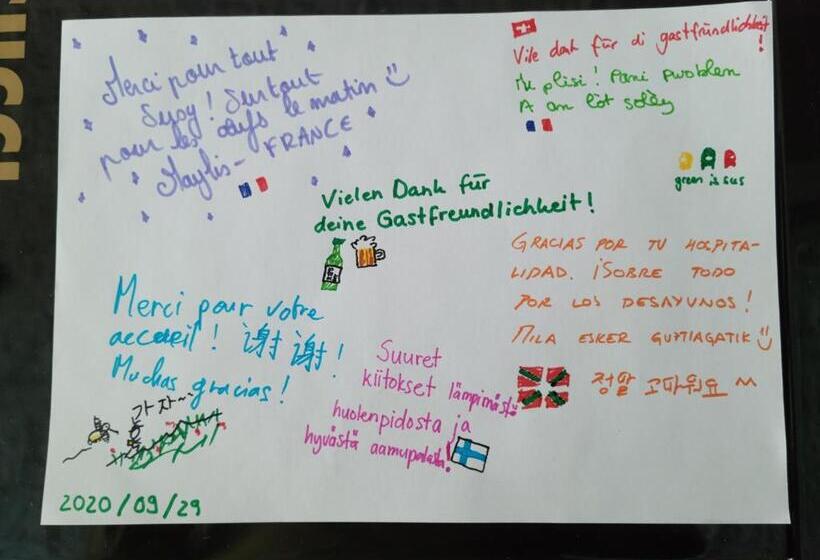 Merci pour tout
Sysy ! Surtout
pour les œufs le matin
Maylis – FRANCE
Vile dank für di gastfründlichkeit !
Mè plisi ! Pani pwoblem
A an lòt solèy
green is sus
Vielen Dank für
deine Gastfreundlichkeit !
GRACIAS POR TU HOSPITA-
LIDAD. ¡SOBRE TODO
POR LOS DESAYUNOS !
MILA ESKER GUZTIAGATIK
정말 고마워요 ^^
Merci pour votre
accueil ! 谢谢 !
Muchas gracias !
가자~
Suuret
kiitokset lämpimästä
huolenpidosta ja
hyvästä aamupalasta!
2020/09/29